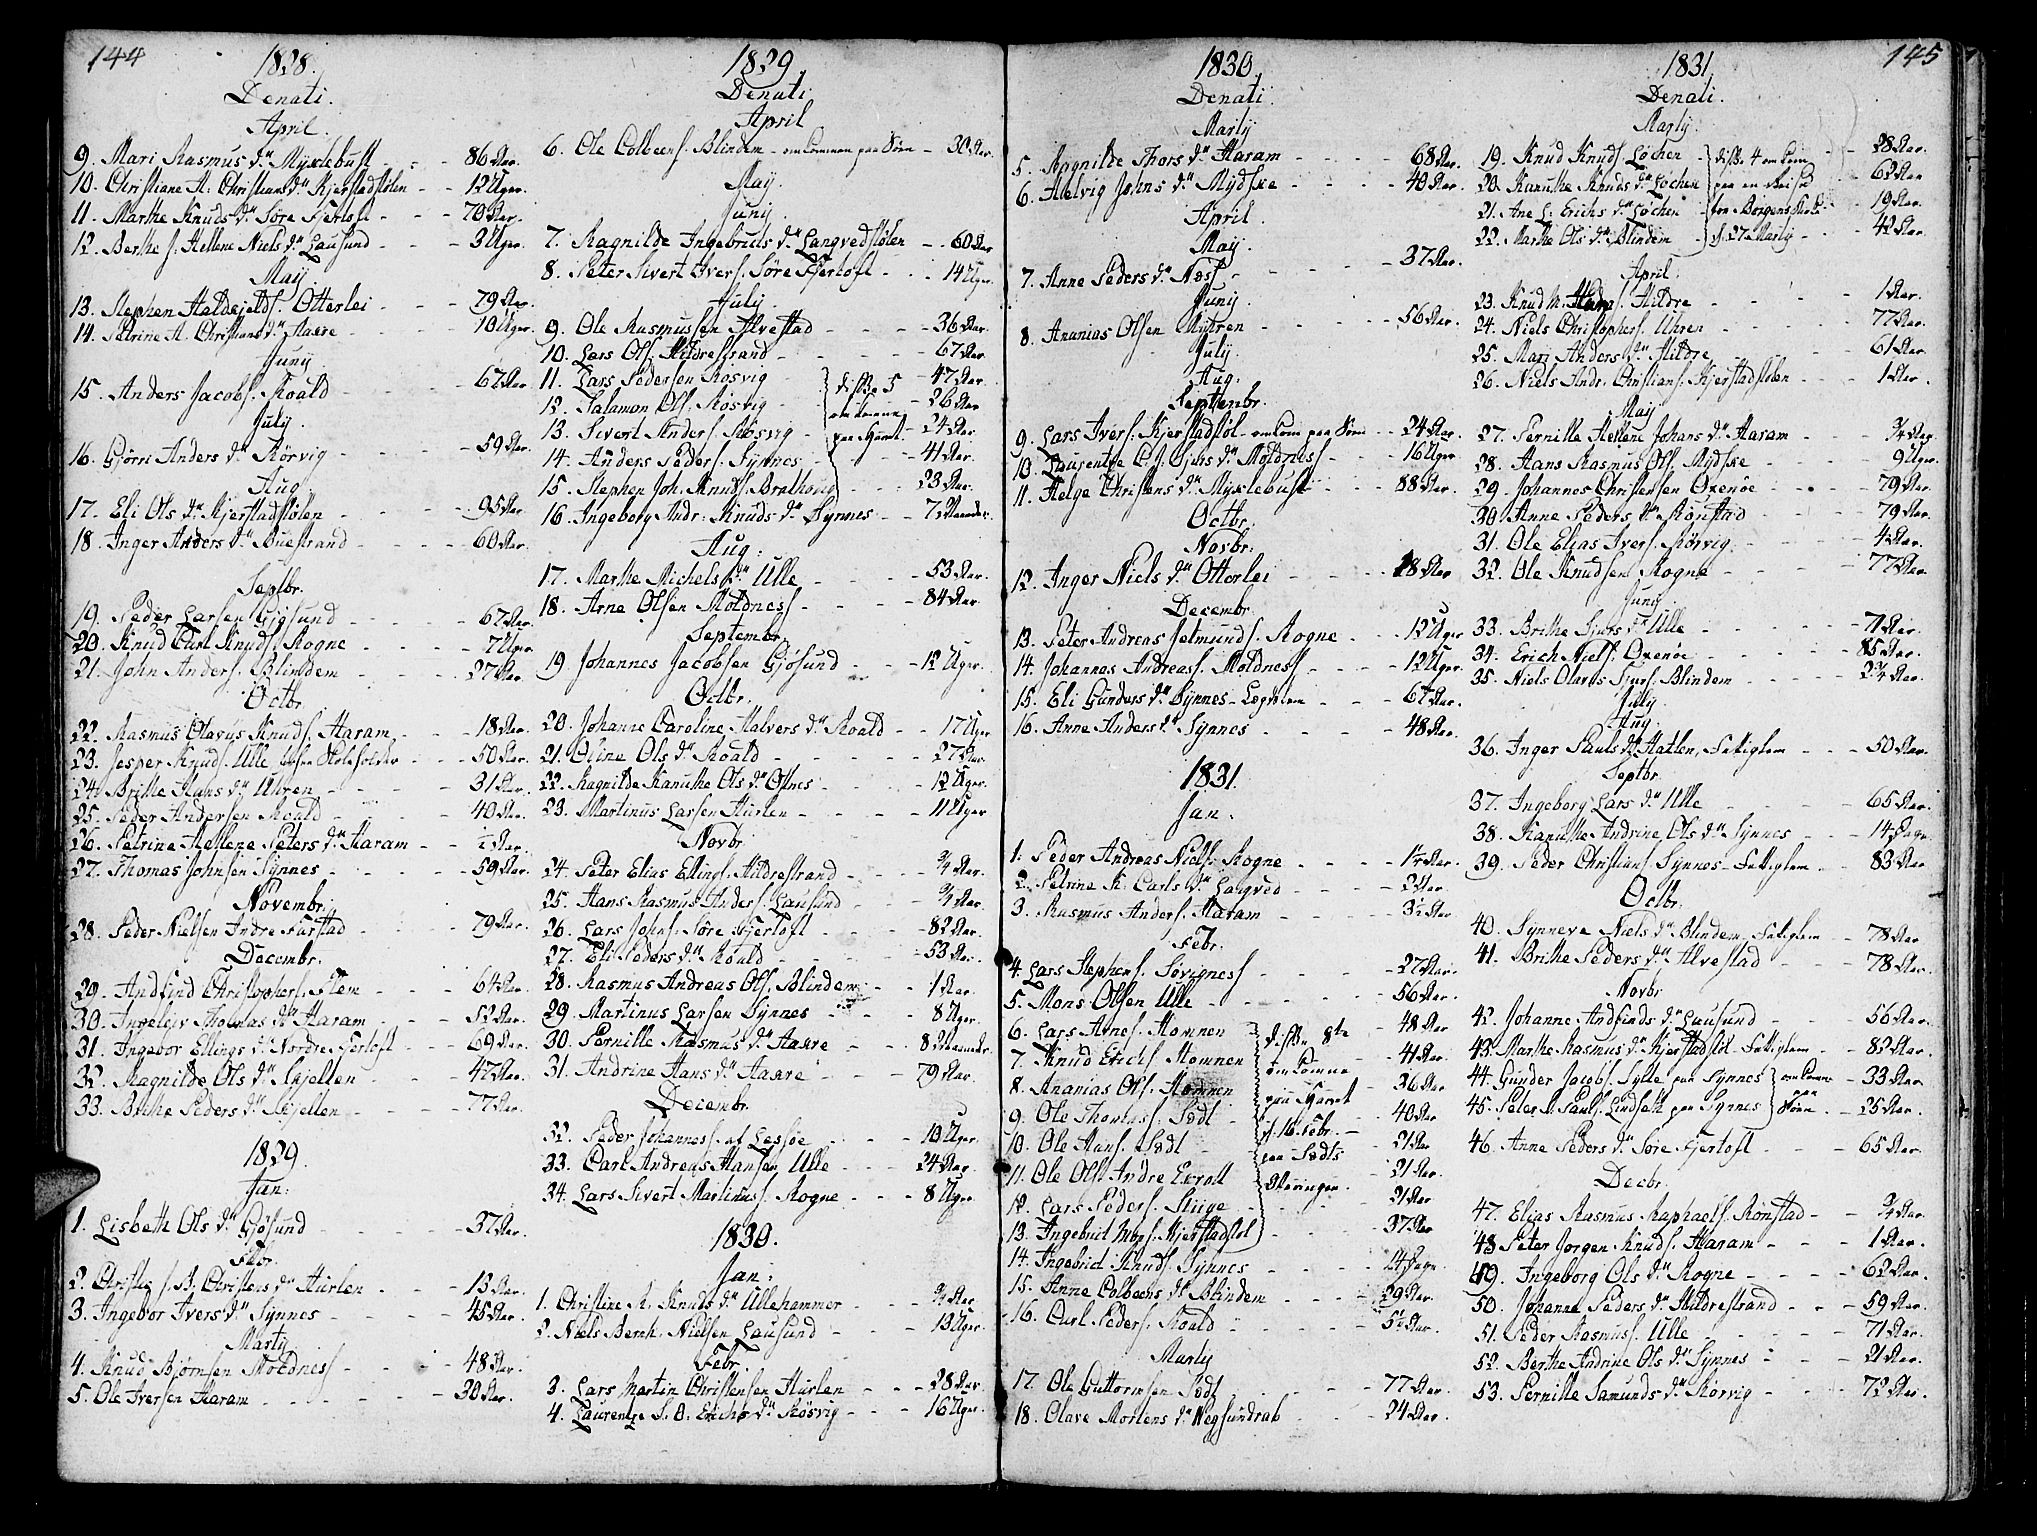 144
1828.
Denati.
April.
9. Mari Rasmus dr Myklebust - - - 86 Aar.
10. Christiane A. Christians dr Kjerstadstølen - - 12 Uger.
11. Marthe Knuds dr Søre Fjertoft - - - 70 Aar.
12. Berthe S. Hellene Niels dr Lausund - - - 3 Uger.
May.
13. Stephen Haldsjelds. Otterlei - - - 79 Aar.
14. Petrine A. Christians dr Haare - - - 10 Uger.
Juny
15. Anders Jacobs. Roald - - - 62 Aar
July.
16. Gjørri Anders dr Rørvig - - - 59 Aar.
Aug
17. Eli Ols dr Kjerstadstølen - - - 95 Aar
18. Inger Anders dr Buestrand - - - 60 Aar.
Septbr.
19. Peder Larsen Gjøsund - - - 67 Aar.
20. Knud Carl Knuds. Rogne - - - 7 Uger
21. John Anders. Blindem - - - 27 Aar
Octbr.
22. Rasmus Olavus Knuds. Haram - - - 18 Aar.
23. Jesper Knuds. Ulle - - - 50 Aar.
24. Brithe Hans dr Uhren - - - 31 Aar.
25. Peder Andersen Roald - - - 40 Aar.
26. Petrine Hellene Peters dr Haram - - ½ Aar.
27. Thomas Johnsen Synnes - - - 59 Aar.
Novembr.
28. Peder Nielsen Indre Farstad - - - 79 Aar.
Decembr.
29. Andfind Christophers. Flem - - - 64 Aar.
30. Ingeleiv Thomas dr Haram - - - 52 Aar.
31. Ingebor Ellings dr Nordre Fjertoft - - - 69 Aar.
32. Ragnilde Ols dr Skjellen - - - 47 Aar.
33. Brithe Peders dr Skjellen - - - 77 Aar.
1829.
Jan:
1. Lisbeth Ols dr Gjøsund - - - 37 Aar.
Febr.
2. Christi S. B. Christens dr Hurlen - - - 13 Aar.
3. Ingebor Ivers dr Synnes - - - 45 Aar.
Martij
4. Knud Bjørnsen Moldness - - - 48 Aar.
5. Ole Iversen Haram - - - 30 Aar.
1829
Denati.
April
6. Ole Colbeens. Blindem - omkommen paa Søen - 30 Aar.
May.
Juny.
7. Ragnilde Ingebrits dr Langvedstølen - - 60 Aar
8. Peter Sivert Ivers. Søre Fjertoft - - - 14 Uger
July.
9. Ole Rasmussen Alvestad - - - 36 Aar.
10. Lars Ols. Hildrestrand - - - 67 Aar.
11. Lars Pedersen Røsvig - 47 Aar.
12. Salamon Ols. Røsvig - 26 Aar
13. Sivert Anders. Røsvig - 24 Aar.
14. Anders Peders. Synnes - - - 41 Aar.
15. Stephen Joh. Knuds. Brathong - - 23 Aar.
disse 5
omkomne
paa Havet.
16. Ingeborg Andr: Knuds dr Synnes - - 7 Maaneder.
Aug:
17. Marthe Michels dr Ulle - - - 53 Aar.
18. Arne Olsen Moldness - - - 84 Aar.
Septembr
19 Johannes Jacobsen Gjøsund - - - 12 Uger.
Octbr.
20. Johanne Caroline Halvers dr Roald - - 17 Uger
21. Oline Ols dr Roald - - - 27 Aar.
22. Ragnilde Kanuthe Ols dr Ofnes - - - 12 Uger.
23. Martinus Larsen Hurlen - - - 11 Uger
Novbr
24. Peter Elias Ellings. Hildrestrand - - - ¾ Aar.
25. Hans Rasmus Anders. Lausund - - - ¾ Aar.
26. Lars Johns. Søre Fjertoft - - - 82 Aar.
27. Eli Peders dr Roald - - - 53 Aar.
28. Rasmus Andreas Ols. Blindem - - 1 Aar.
29. Martinus Larsen Synnes - - - 8 Uger.
30. Pernille Rasmus dr Haare - - - 8 Maaneder.
31. Andrine Hans dr Haare - - - 79 Aar.
Decembr.
32. Peder Johanness. af Lessøe - - - 10 Uger.
33. Carl Andreas Hansen Ulle - - - 24 Aar
34. Lars Sivert Martinus. Rogne - - - 8 Uger
1830.
Jan:
1. Christine M. Knuds dr Ullehammer - - - ¾ Aar
2. Niels Bernh. Nielsen Lausund - - - 13 Uger.
Febr.
3. Lars Martin Christensen Hurlen - - - 28 Aar
4. Laurentze S. O. Erichs dr Røsvig - - - 16 Uger.
1830
Denati.
Martij
5. Ragnilde Thors dr Haram - - - 68 Aar.
6. Helvig Johns dr Mydske - - - 40 Aar.
April.
May.
7. Anne Peders dr Næss - - - 37 Aar.
Juny.
8. Ananias Olsen Mytren - - - 56 Aar.
July.
Aug.
Septembr.
9. Lars Ivers. Kjerstadstøl - omkom paa Søen - - 24 Aar.
10. Laurentze O. Sjurs dr Moldness - - - 16 Uger
11. Helge Christens dr Myklebust - - - 88 Aar.
Octbr.
Novbr.
12. Inger Niels dr Otterlei - - - 18 Aar
Decembr.
13. Peter Andreas Jetmunds. Rogne - - - 12 Uger
14. Johannes Andreas. Moldness - - - 12 Uger.
15. Eli Gunders dr Synnes - Lægdslem - - - 67 Aar.
16. Anne Anders dr Synnes - - - 48 Aar.
1831.
Jan.
1. Peder Andreas Niels. Rogne - - - 1½ Aar.
2. Petrine K. Carls dr Langved - - - 2 Aar.
3. Rasmus Anders. Haram - - - 3½ Aar
Febr.
4. Lars Stephens. Søvigness - - - 27 Aar.
5. Mons Olsen Ulle - - - 56 Aar.
6. Lars Arnes. Homnen - 48 Aar
7. Knud Erichs. Homnen - 41 Aar.
8. Ananias Ols. Homnen - 36 Aar.
9. Ole Thomas. Rødt - 40 Aar
10. Ole Hans. Rødt - - 21 Aar
11. Ole Ols. Indre Exroll - 21 Aar.
12. Lars Peders. Stuge - - - 21 Aar
13. Ingebrict Mogs. Kjerstadstøl - - - 37 Aar
disse 8te
omkomne
paa Havet
d. 16 Febr. -
paa Rødts
Skaringen.
14. Ingebrict Knuds. Synnes - - - 14 Dage
15. Anne Colbeens dr Blindem - - - 29 Aar.
16. Carl Peders. Roald - - - 5½ Aar.
Martij
17. Ole Guttormsen Rødt - - - 77 Aar.
18. Olave Mortens dr Hegsundrab - - - 24 Aar.
1831
145
Denati.
Martij.
19. Knud Knuds. Løchen - - 28 Aar.
20. Kanuthe Knuds dr Løchen - 62 Aar
21. Ane L. Erichs dr Løchen - 19 Aar.
22. Marthe Ols dr Blindem - - 42 Aar.
disse 4 omkom
paa en Reise
fra Borgens Kirke
d. 27 Martij
April.
23. Knud M. Hans. Hildre - - - 1 Aar.
24. Niels Christophers. Uhren - - - 77 Aar.
25. Mari Anders dr Hildre - - - 61 Aar.
26. Niels Andr. Christians. Kjerstadstølen - - - 1 Aar.
May
27. Pernille Hellene Johans dr Haram - - - ¾ Aar
28. Hans Rasmus Ols. Mydske - - - 9 Uger.
29. Johannes Christensen Oxenøe - - - 79 Aar.
30 Anne Peders dr Rønstad - - - 79 Aar.
31. Ole Elias Ivers. Rørvig - - - 4 Aar.
32. Ole Knudsen Rogne - - - 77 Aar.
Juny.
33. Brithe Sjurs dr Ulle - - - 71 Aar.
34. Erich Niels. Oxenøe - - - 85 Aar.
35. Niels Olavus Sjurs. Blindem - - - 2¾ Aar.
July
Aug.
36. Inger Pauls dr Hatlen, Fattiglem - - - 50 Aar.
Septbr.
37. Ingeborg Lars dr Ulle - - - 65 Aar.
38. Kanuthe Andrine Ols dr Synnes - - - 14 Dage
39. Peder Christians. Synnes - Fattiglem - - 83 Aar
Octbr.
40. Synneve Niels dr Blindem, Fattiglem - - 78 Aar
41. Brithe Peders dr Alvestad - - - 78 Aar.
Novbr
42. Johanne Andfinds dr Lausund - - - 56 Aar.
43. Marthe Rasmus dr Kjerstadstøl - Fattiglem - - 82 Aar.
44. Gunder Jacobs. Sylte paa Synnes - 33 Aar.
45. Peter S. Pauls. Lindseth paa Synnes - 25 Aar.
omkomne
paa
Søen
46. Anne Peders dr Søre Fjertoft - - - 65 Aar.
Decbr.
47. Elias Rasmus Raphaels. Rønstad - - ¾ Aar.
48 Peter Jørgen Knuds. Haram - - - 1 Aar.
49. Ingeborg Ols dr Rogne - - - 62 Aar.
50. Johanne Peders dr Hildrestrand - - - 59 Aar.
51. Peder Rasmus. Ulle - - - 71 Aar.
52. Berthe Andrine Ols dr Synnes - - - 21 Aar.
53. Pernille Samunds dr Rørvig - - - 72 Aar.